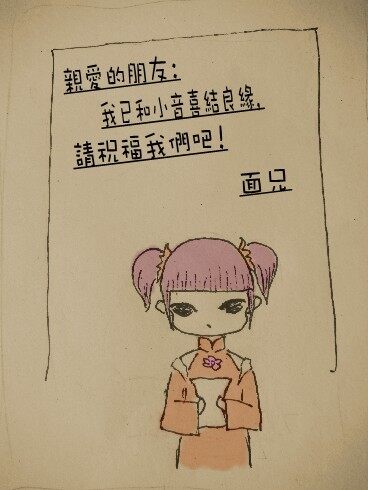 親愛的朋友：
我已和小音喜結良緣，
請祝福我們吧！
面兄